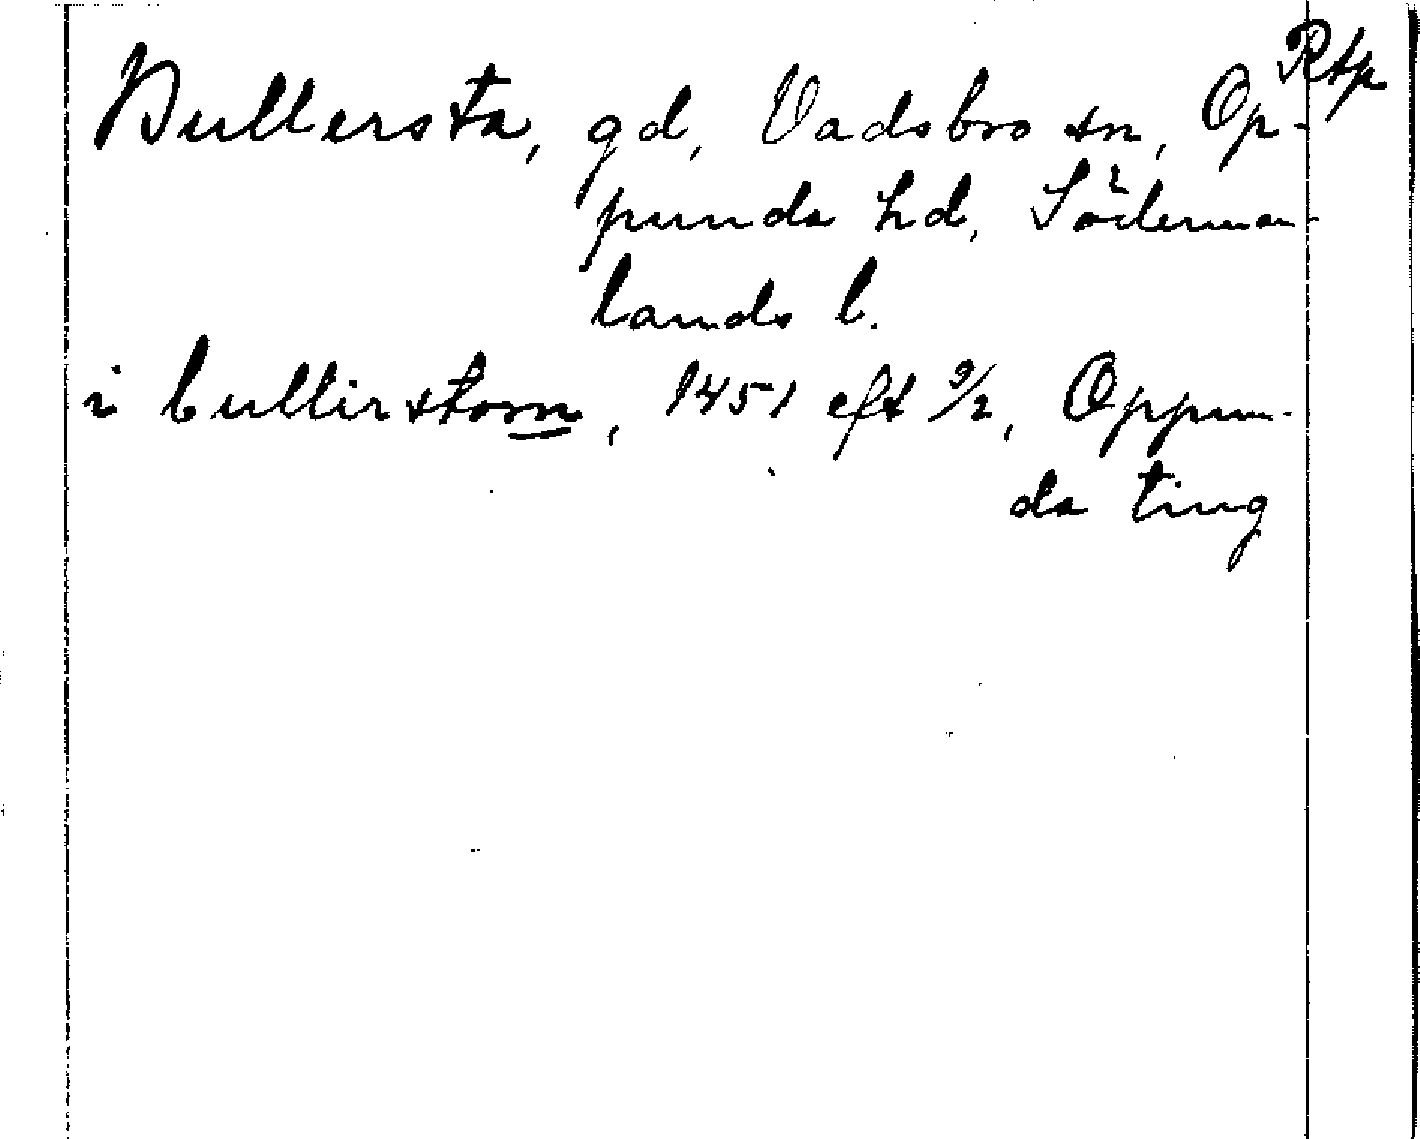 Rtp
Bullersta, gd, Vadsbro sn, Op-
punda hd, Söderman-
lands l.
i bullirstom, 1451 eft 9/2, Oppun-
da ting